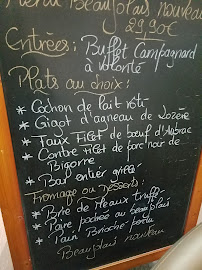 Menu Beaujolais nouveau
29.90€
Entrées: Buffet Campagnard
à volonté
Plats au choix:
* Cochon de lait rôti
* Gigot d'agneau de Lozère
* Faux Filet de bœuf d'Aubrac
* Contre Filet de porc noir de
Bigorre
* Bar entier grillé
Fromage ou desserts:
* Brie de Meaux truffé
* Poire pochée au beaujolais
* Pain Brioché perdu
Beaujolais nouveau